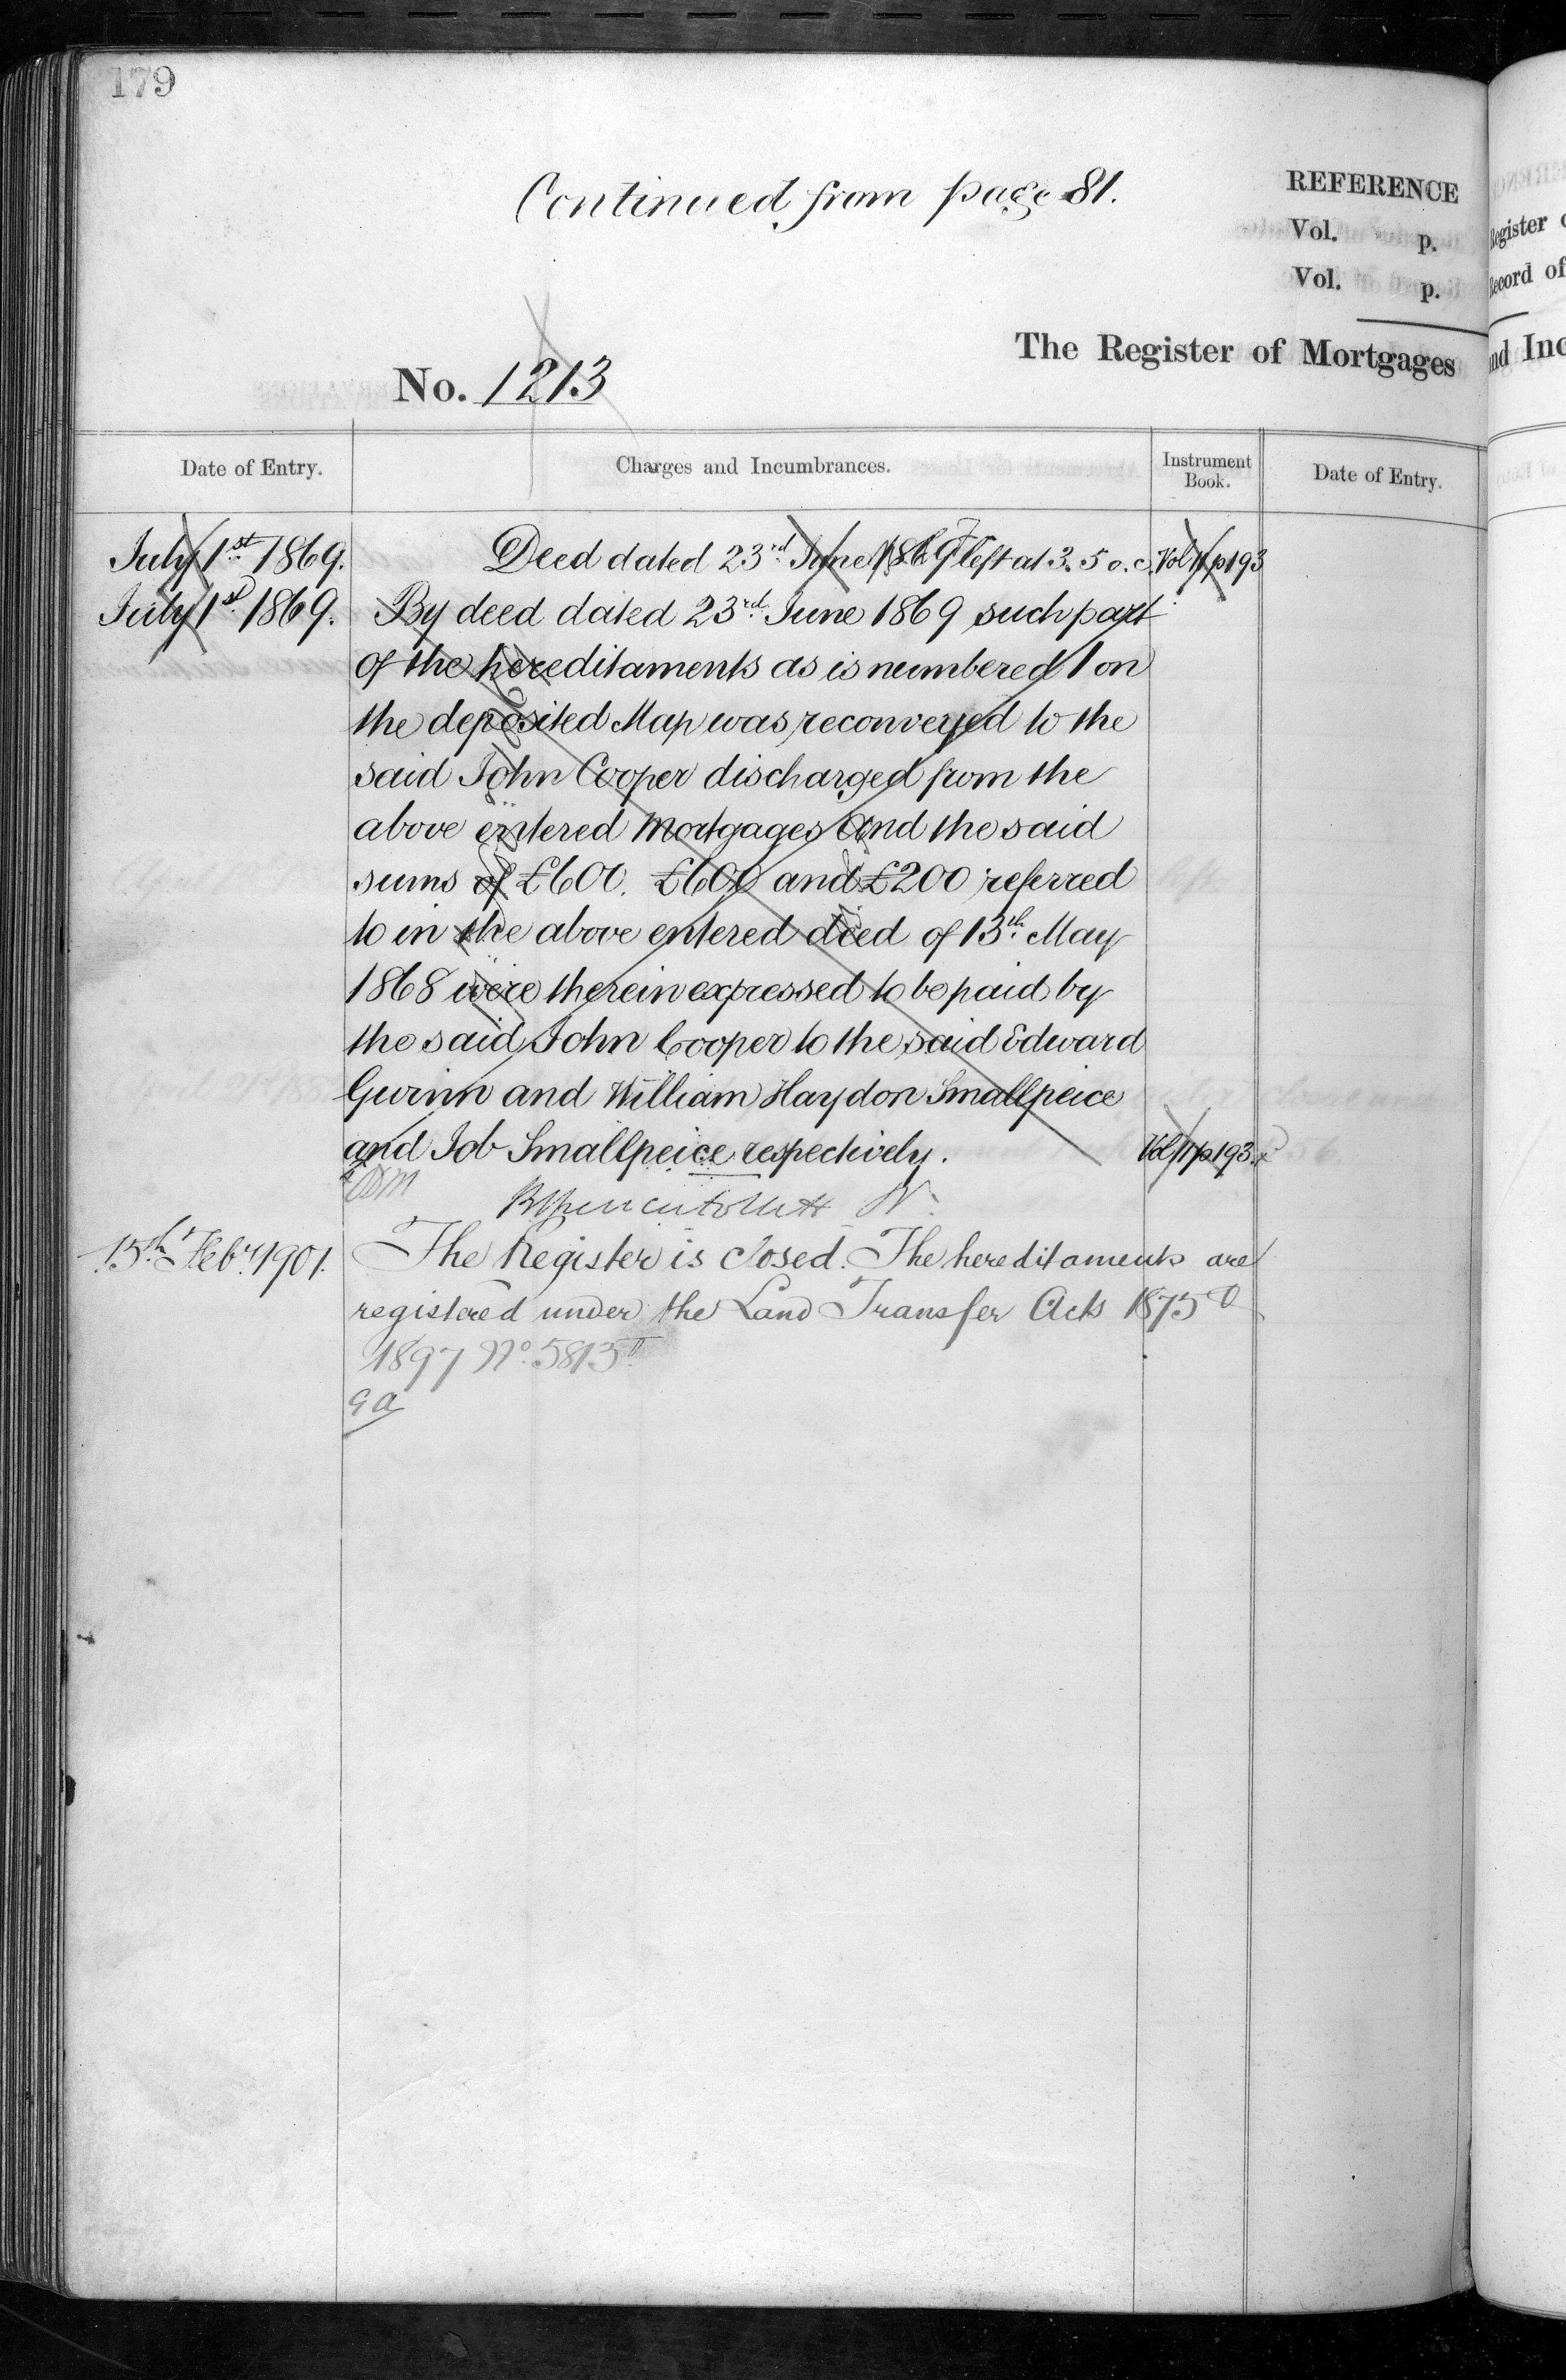 179
Continued from page 81.
REFERENCE
Vol. p.
Vol. p.
The Register of Mortgages
No. 1213
Date of Entry. Charges and Incumbrances. Instrument Book. Date of Entry.
July 1st 1869. Deed dated 23rd June 1869 left at 3.5 o.c. Vol 11 p 193
July 1st 1869. By deed dated 23rd June 1869 such part
of the hereditaments as is numbered 1 on
the deposited Map was reconveyed to the
said John Cooper discharged from the
above entered Mortgages and the said
sums of £600. £600 and £200 referred
to in the above entered deed of 13th May
1868 were therein expressed to be paid by
the said John Cooper to the said Edward
Gwinn and William Haydon Smallpeice
and Job Smallpeice respectively. Vol 11 p 193.
15th Feby 1901. The Register is closed. The hereditaments are
registered under the Land Transfer Acts 1875 &
1897 No. 5813
Register o
Record of
nd Inc